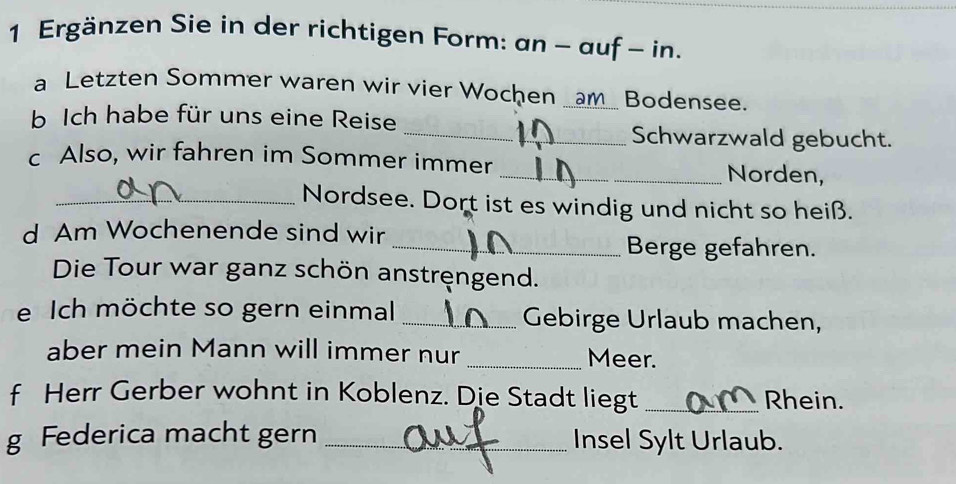 1 Ergänzen Sie in der richtigen Form: an – auf – in.
a Letzten Sommer waren wir vier Wochen am Bodensee.
b Ich habe für uns eine Reise in Schwarzwald gebucht.
c Also, wir fahren im Sommer immer in Norden,
an Nordsee. Dort ist es windig und nicht so heiß.
d Am Wochenende sind wir in Berge gefahren.
Die Tour war ganz schön anstrengend.
e Ich möchte so gern einmal in Gebirge Urlaub machen,
aber mein Mann will immer nur Meer.
f Herr Gerber wohnt in Koblenz. Die Stadt liegt am Rhein.
g Federica macht gern auf Insel Sylt Urlaub.